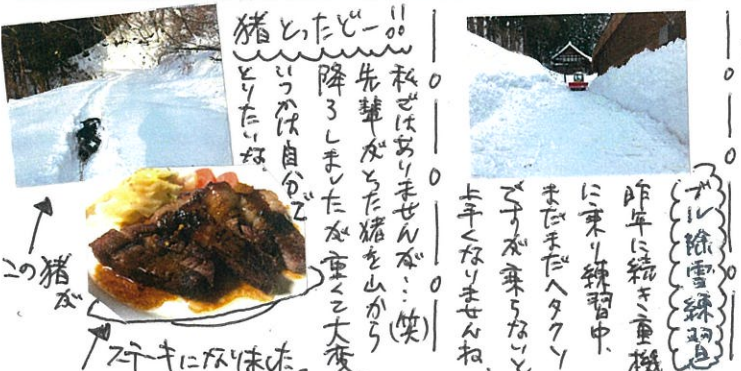 ブル除雪練習
昨年に続き重機
に乗り練習中、
まだまだヘタクソ
ですが乗らないと
上手くなりませんね。
猪とったどー!!
私ではありませんが…(笑)
先輩がとった猪を山から
降ろしましたが重くて大変
いつかは自分で
とりたいな
この猪が
ステーキになりました。